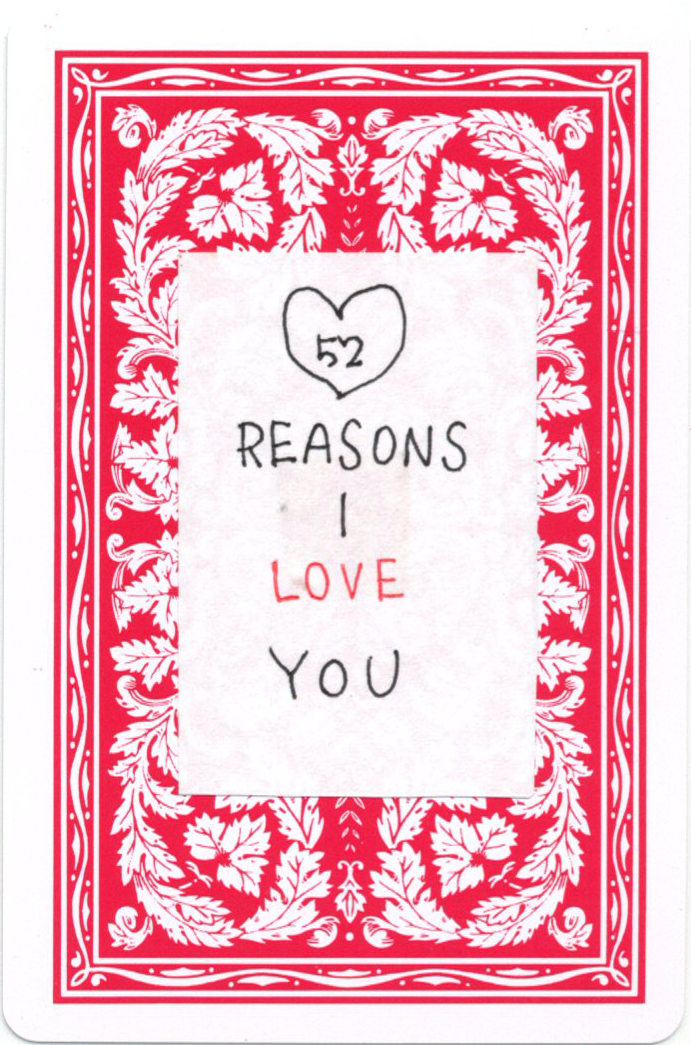 52
REASONS
I
LOVE
YOU